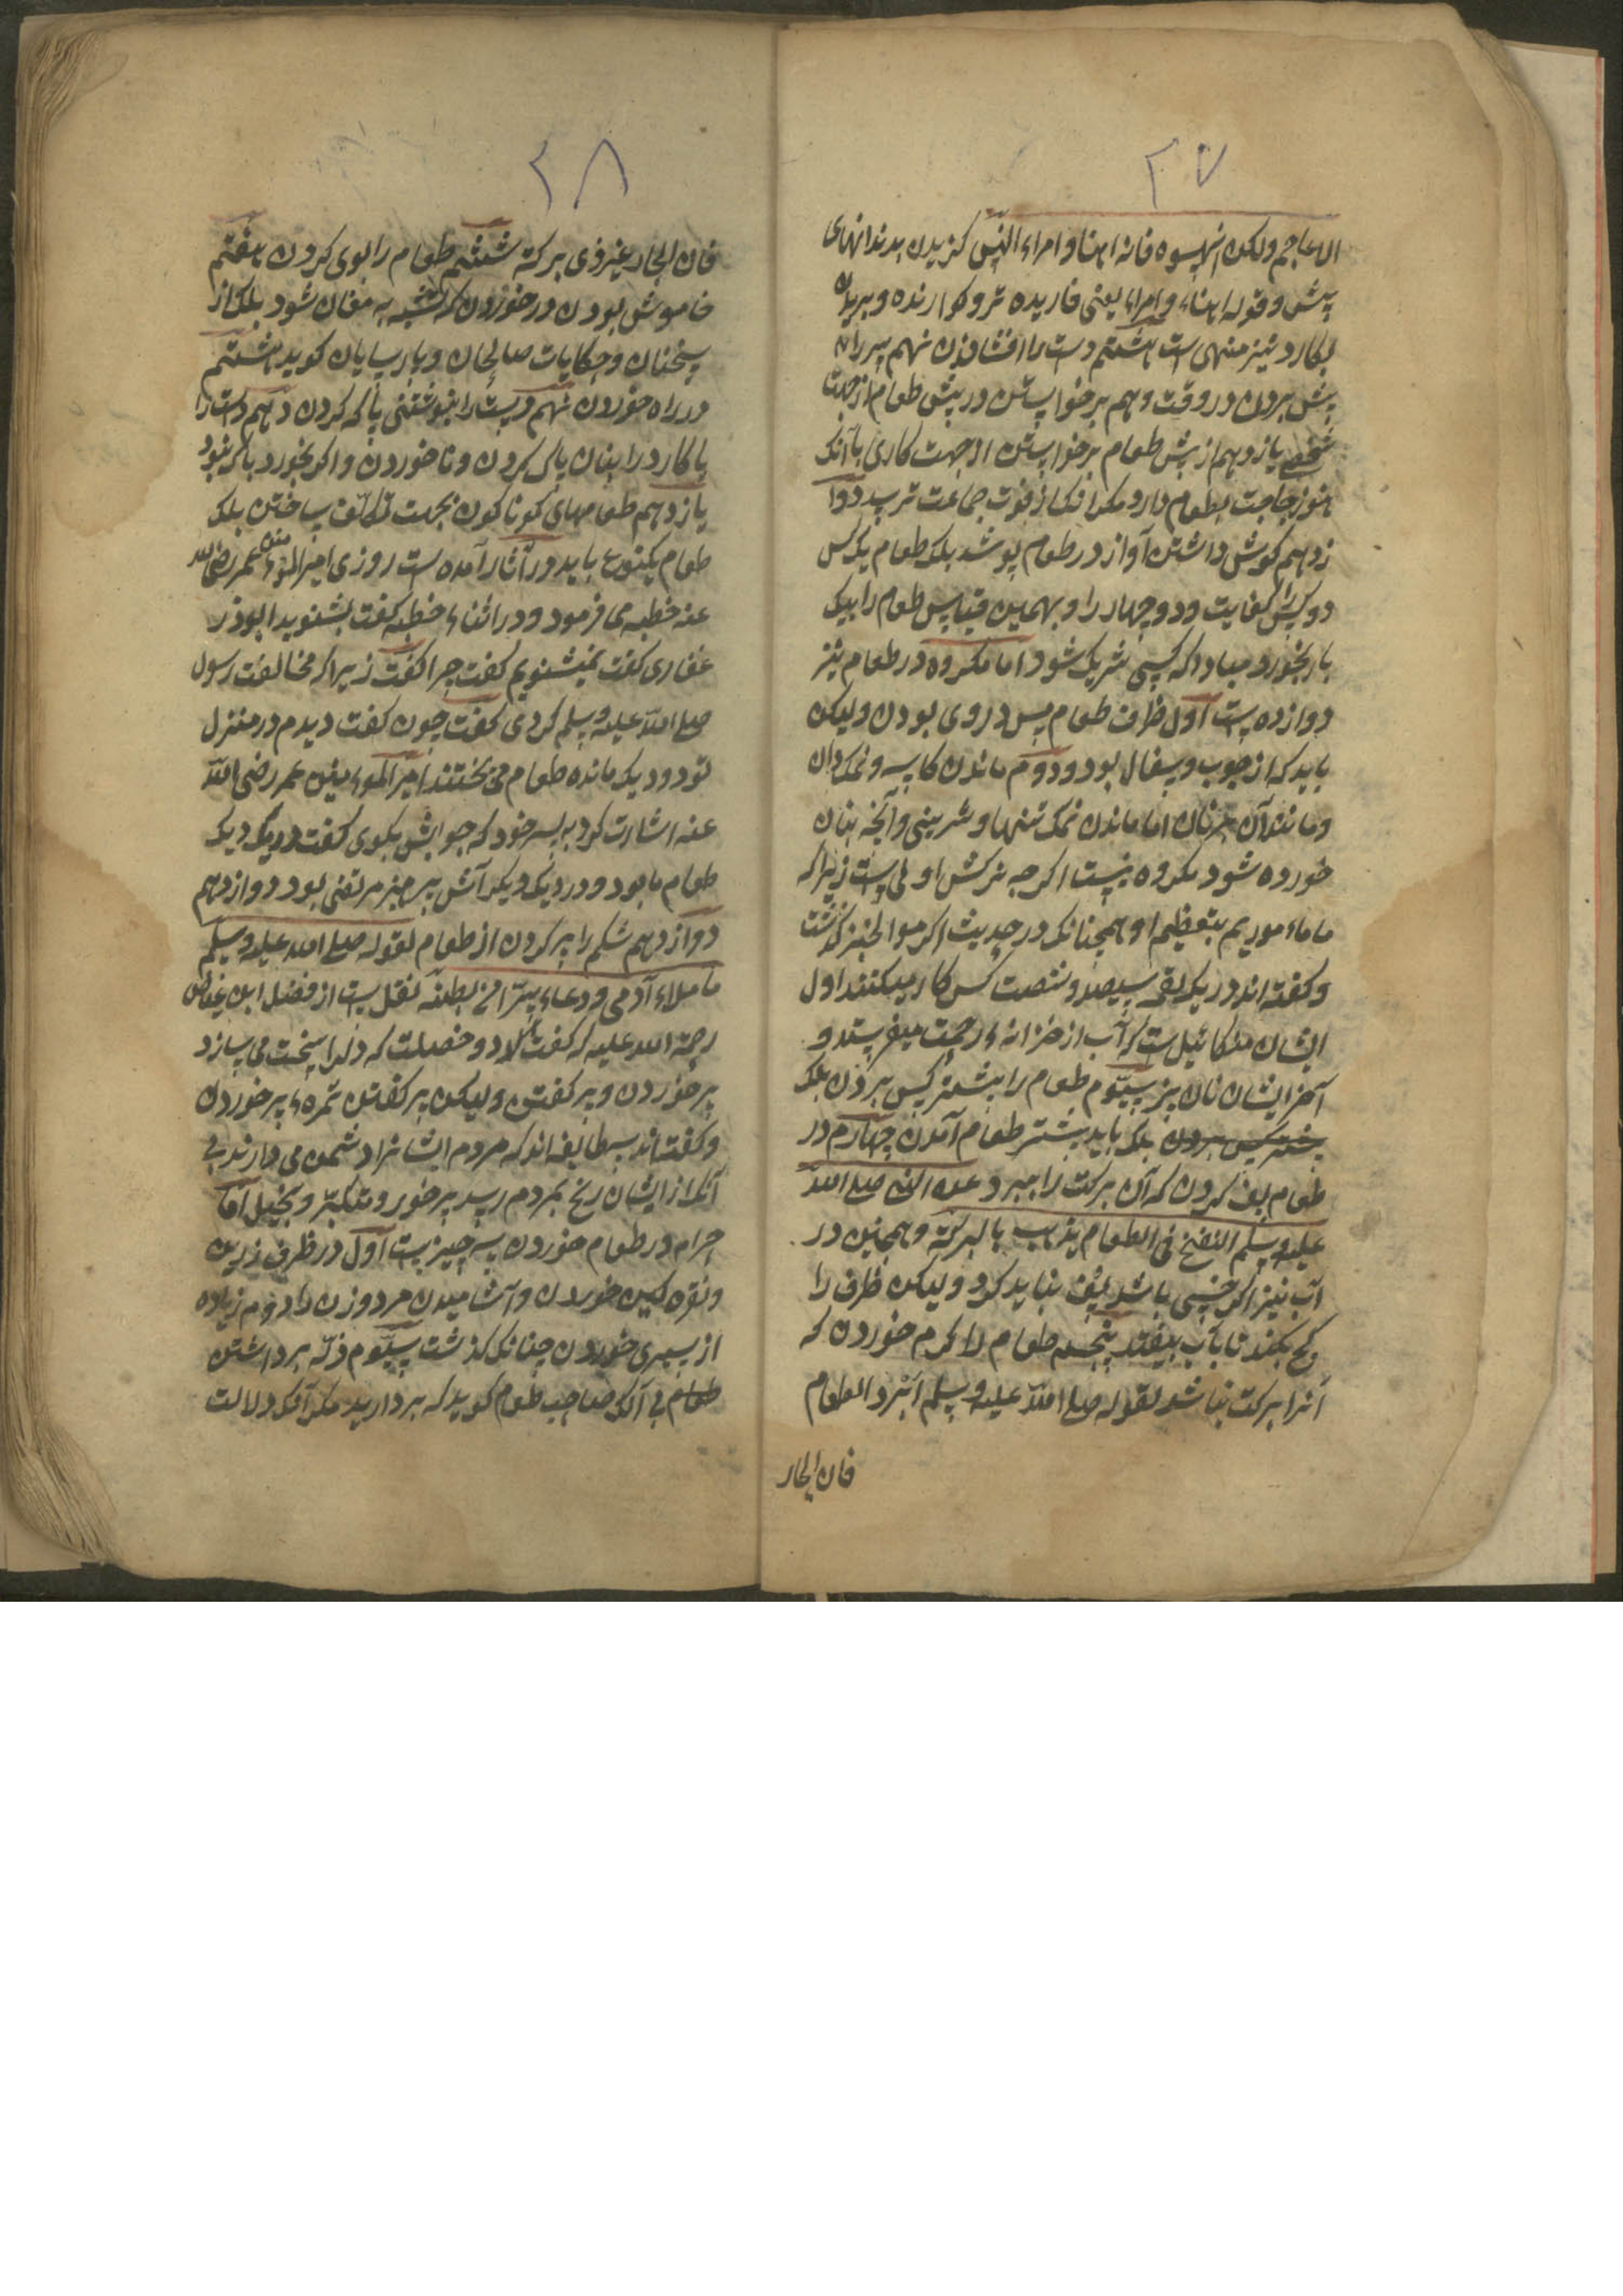 ۲۷
الاعاجم ولکن انهسوه فانه اهنا و امراء النهس کزیدن بدندانهای
پیش و قوله اهناء و امراء یعنی فاریده تر و کوارنده و بریدن
بکارد نیز منهی است هشتم دست را افشاندن نهم سر را
پیش بردن در وقت دهم برخواستن در پیش طعام از جهت
شخصی یازدهم از پیش طعام برخواستن از جهت کاری با آنک
هنوز حاجت بطعام دارد مکر آنک از فوت جماعت ترسد دوا
زدهم کوش داشتن آواز در طعام بوشد بلک طعام یک کس
دو کس را کفایت و دو چهار را و بهمین قیاس طعام را بیک
بار نخورد مبادا که کسی شریک شود اما مکروه در طعام نیز
دوازده است اول ظرف طعام مس و روی بودن ولیکن
باید که از چوب و سفال بود و دوم ماندن کاسه و نمکدان
و مانند آن بر نان اما ماندن نمک تنها و شیرینی و آنچه بنان
خورده شود مکروه نیست اکرچه ترکش اولی است زیرا که
ما مأموریم بتعظیم او همچنانک در حدیث اکرموا الخبز کذشت
و کفته اند در یک لقمه سیصد و شصت کس کار میکنند اول
ایشان میکائیل است که آب از خزانهٔ رحمت میفرستد و
آخر ایشان نان پز سیّوم طعام را بیشتر کس بردن بلک
بیشتر کس بردن بلک باید بیشتر طعام آمدن چهارم در
طعام پف کردن که آن برکت را میبرد عن النبی صلی الله
علیه وسلم النفخ فی الطعام یذهب بالبرکة و همچنین در
آب نیز اکر خسی باشد پف نباید کرد ولیکن ظرف را
کج بکند تا بآب بیفتد پنجم طعام را کرم خوردن که
آنرا برکت نباشد لقوله صلی الله علیه وسلم ابرد الطعام
فان الحار
۲۸
فان الحار غیر ذی برکة ششم طعام را بوی کردن هفتم
خاموش بودن در خوردن که تشبه به مغان شود بلک از
سخنان و حکایات صالحان و پارسایان کوید هشتم
در راه خوردن نهم دست را بنوشتنی پاک کردن دهم دست را
یا کارد را بنان پاک کردن و ناخوردن و اکر بخورد باک نبود
یازدهم طعامهای کوناکون بجهت تکلّف ساختن بلک
طعام یکنوع باید در آثار آمده است روزی امیر المؤمنین عمر رضی الله
عنه خطبه می فرمود و در اثناء خطبه کفت بشنوید ابوذر
غفاری کفت نمیشنویم کفت چرا کفت زیرا که مخالفت رسول
صلی الله علیه وسلم کردی کفت چون کفت دیدم در منزل
تو دو دیک مانده طعام می پختند امیر المؤمنین عمر رضی الله
عنه اشارت کرد به پسر خود که جوابش بکوی کفت در یک دیک
طعام ما بود و در دیک دیکر آش پرهیز مریضی بود دوازدهم
دوازدهم شکم را پر کردن از طعام لقوله صلی الله علیه وسلم
ما ملاء آدمی وعاء شرّا من بطنه نقل است از فضیل ابن عیاض
رحمة الله علیه که کفت دو خصلت که دلرا سخت می سازد
پر خوردن و پر کفتن ولیکن پر کفتن ثمرهٔ پر خوردن
و کفته اند سه طایفه اند که مردم ایشانرا دشمن می دارند بی
آنک از ایشان رنج بمردم رسد پرخور و متکبّر و بخیل اما
حرام در طعام خوردن سه چیز است اول در ظرف زرین
و نقره کین خوردن و آشامیدن مرد و زن را دوم زیاده
از سیری خوردن چنانک کذشت سیّوم ذلّه برداشتن
طعام بی آنک صاحب طعام کوید که بردارید مکر آنک دلالت